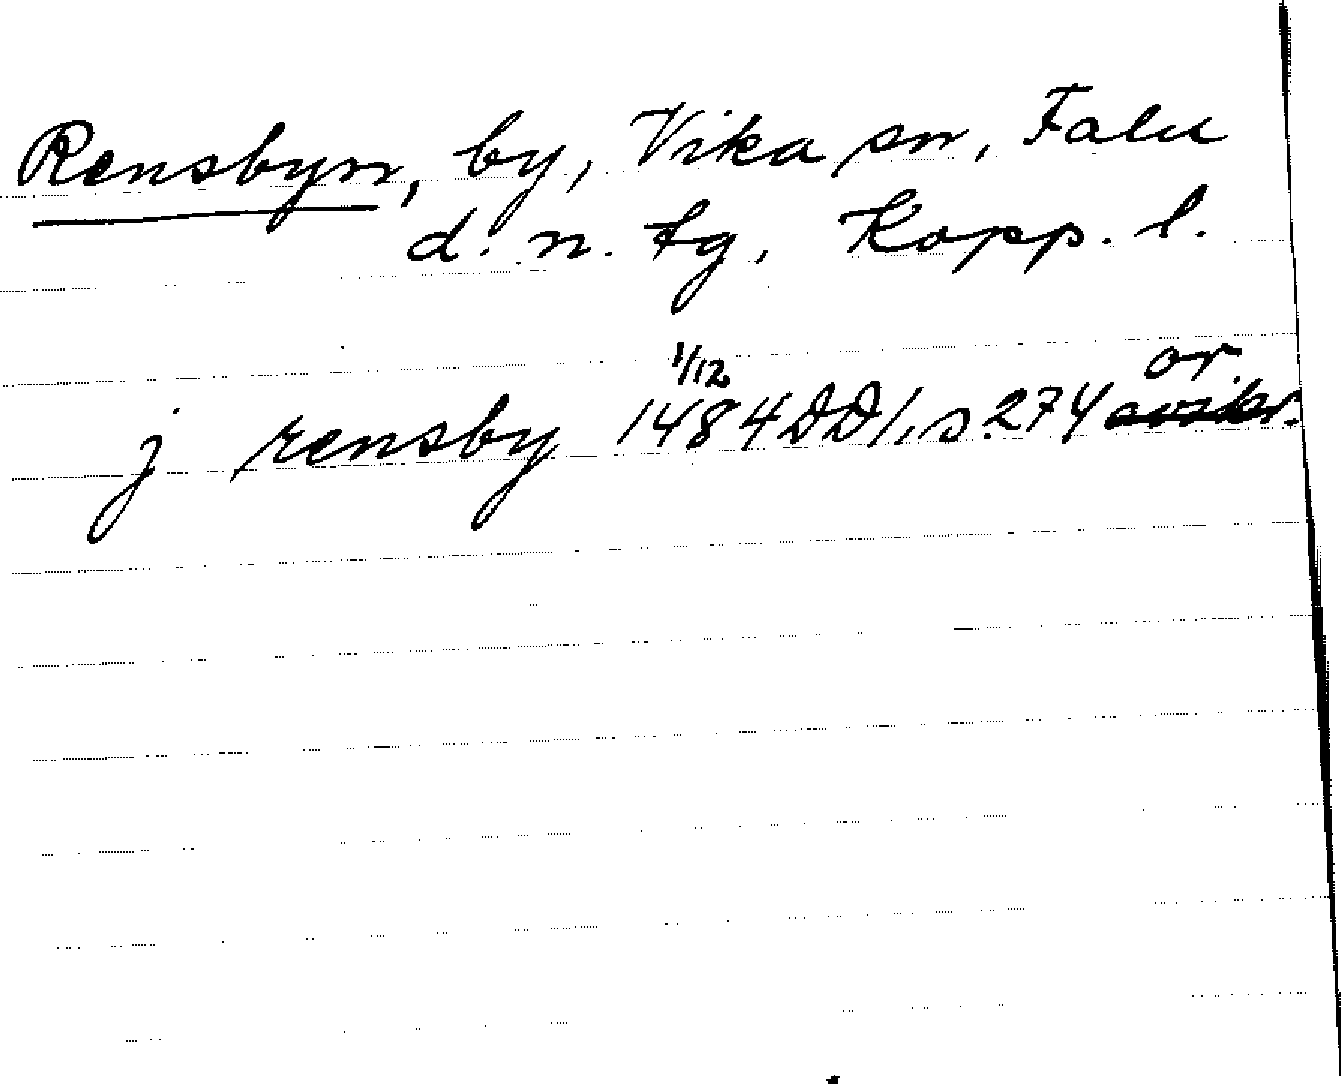 Rensbyn, by, Vika sn, Falu
d. n. tg, Kopp. l.
1/12 or.
j rensby 1484 DD 1, s. 274